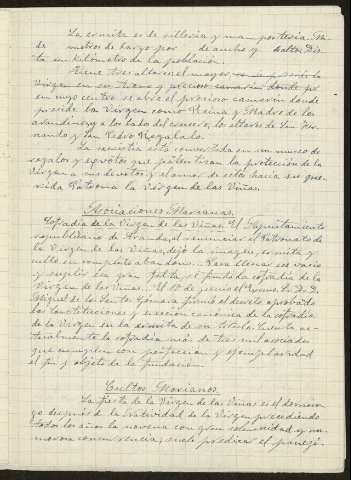 La ermita es de sillería y mampostería. Mi-
de metros de largo por de ancho y alto. Dis-
ta un kilometro de la población.
Tiene tres altares, el mayor
Virgen en su trono y precioso camarin donde
en cuyo centro se abre el precioso camarin donde
preside la Virgen como Reina y Madre de los
arandinos y a los lados del crucero, los altares de San Fer-
nando y San Pedro Regalado.
La sacristia está convertida en un museo de
regalos y exvotos que patentizan la protección de la
Virgen a sus devotos y el amor de estos hacia su que-
rida Patrona la Virgen de las Viñas.
Asociaciones Marianas.
Cofradia de la Virgen de las Viñas. El Ayuntamiento
republicano de Aranda, al renunciar el Patronato de
la Virgen de las Viñas, dejó la imagen, ermita y
culto en completo abandono. Para llenar ese vacio
y suplir esa gran falta, se fundó la cofradia de la
Virgen de las Viñas. El 10 de junio el Excmo. Sr. D. D.
Miguel de los Santos Gómara firmó el decreto aprobando
las constituciones y erección canónica de la cofradia
de la Virgen en la ermita de su título. Cuenta ac-
tualmente la cofradia más de tres mil asociados
que cumplen con perfección y ejemplaridad
el fin y objeto de la fundación.
Cultos Marianos.
La fiesta de la Virgen de las Viñas es el domin-
go después de la Natividad de la Virgen precediendo
todos los años la novena con gran solemnidad y nu-
merosa concurrencia; suele predicar el panegí-